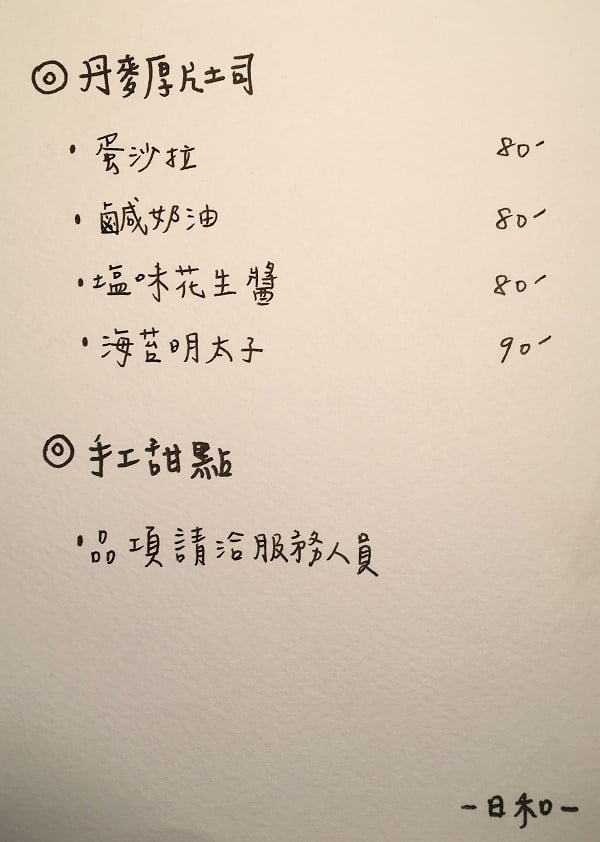 ◎ 丹麥厚片土司
・蛋沙拉 80-
・鹹奶油 80-
・塩味花生醬 80-
・海苔明太子 90-
◎ 手工甜點
・品項請洽服務人員
-日和-